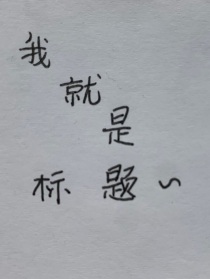 我
就
是
标题~